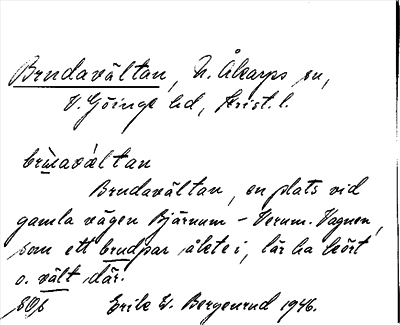 Brudavältan, N. Åkarps sn,
V. Göinge hd, Krist. l.
brùavæ̀ltan
Brudavältan, en plats vid
gamla vägen Bjärnum - Verum. Vagnen,
som ett brudpar åkte i, lär ha kört
o. vält där.
Erik W. Bergenrud 1946.